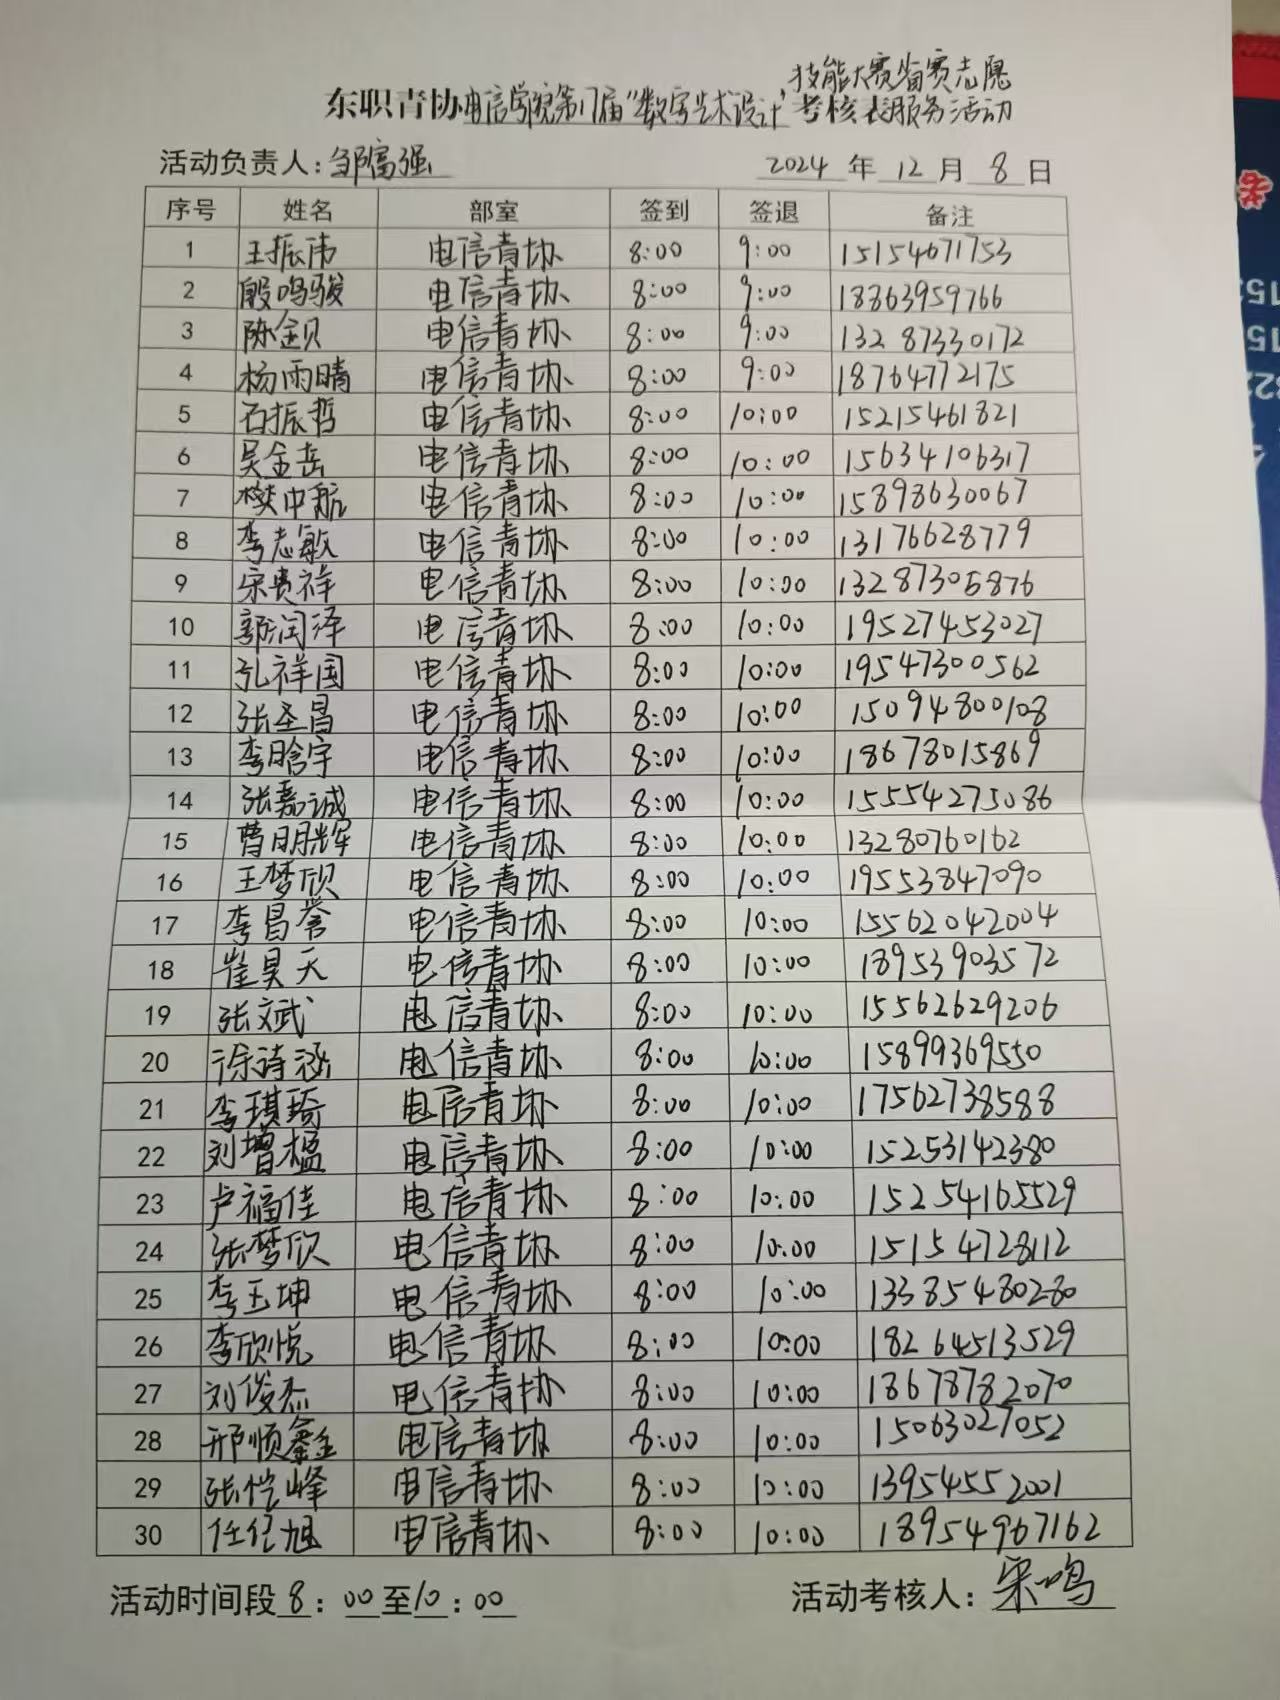 技能大赛省赛志愿
东职青协电信学院第17届"数字艺术设计"考核表服务活动
活动负责人：邹富强 2024 年 12 月 8 日
序号 姓名 部室 签到 签退 备注
1 王振伟 电信青协 8:00 9:00 15154671753
2 殷鸣骏 电信青协 8:00 9:00 18863959766
3 陈金贝 电信青协 8:00 9:00 13287330172
4 杨雨晴 电信青协 8:00 9:00 18764772175
5 石振哲 电信青协 8:00 10:00 15215461821
6 吴金岳 电信青协 8:00 10:00 15634106317
7 樊中航 电信青协 8:00 10:00 15898630067
8 李志敏 电信青协 8:00 10:00 13176628779
9 宋贵祥 电信青协 8:00 10:00 13287305876
10 郭润泽 电信青协 8:00 10:00 19527453027
11 孔祥国 电信青协 8:00 10:00 19547300562
12 张圣昌 电信青协 8:00 10:00 15094800108
13 李晗宇 电信青协 8:00 10:00 18678015869
14 张嘉诚 电信青协 8:00 10:00 15554275086
15 曹明辉 电信青协 8:00 10:00 13280760162
16 王梦欣 电信青协 8:00 10:00 19553847090
17 李昌誉 电信青协 8:00 10:00 15562042004
18 崔昊天 电信青协 8:00 10:00 18953903572
19 张文武 电信青协 8:00 10:00 15562629206
20 徐诗涵 电信青协 8:00 10:00 15899369550
21 李琪琦 电信青协 8:00 10:00 17562738588
22 刘增楹 电信青协 8:00 10:00 15253142380
23 卢福佳 电信青协 8:00 10:00 15254165529
24 张梦欣 电信青协 8:00 10:00 15154728112
25 李玉坤 电信青协 8:00 10:00 13385480280
26 李欣悦 电信青协 8:00 10:00 18264513529
27 刘俊杰 电信青协 8:00 10:00 18678782070
28 邢顺鑫 电信青协 8:00 10:00 15063027052
29 张恺峰 电信青协 8:00 10:00 13954552001
30 任纪旭 电信青协 8:00 10:00 18954967162
活动时间段 8：00至10：00 活动考核人：宋鸣